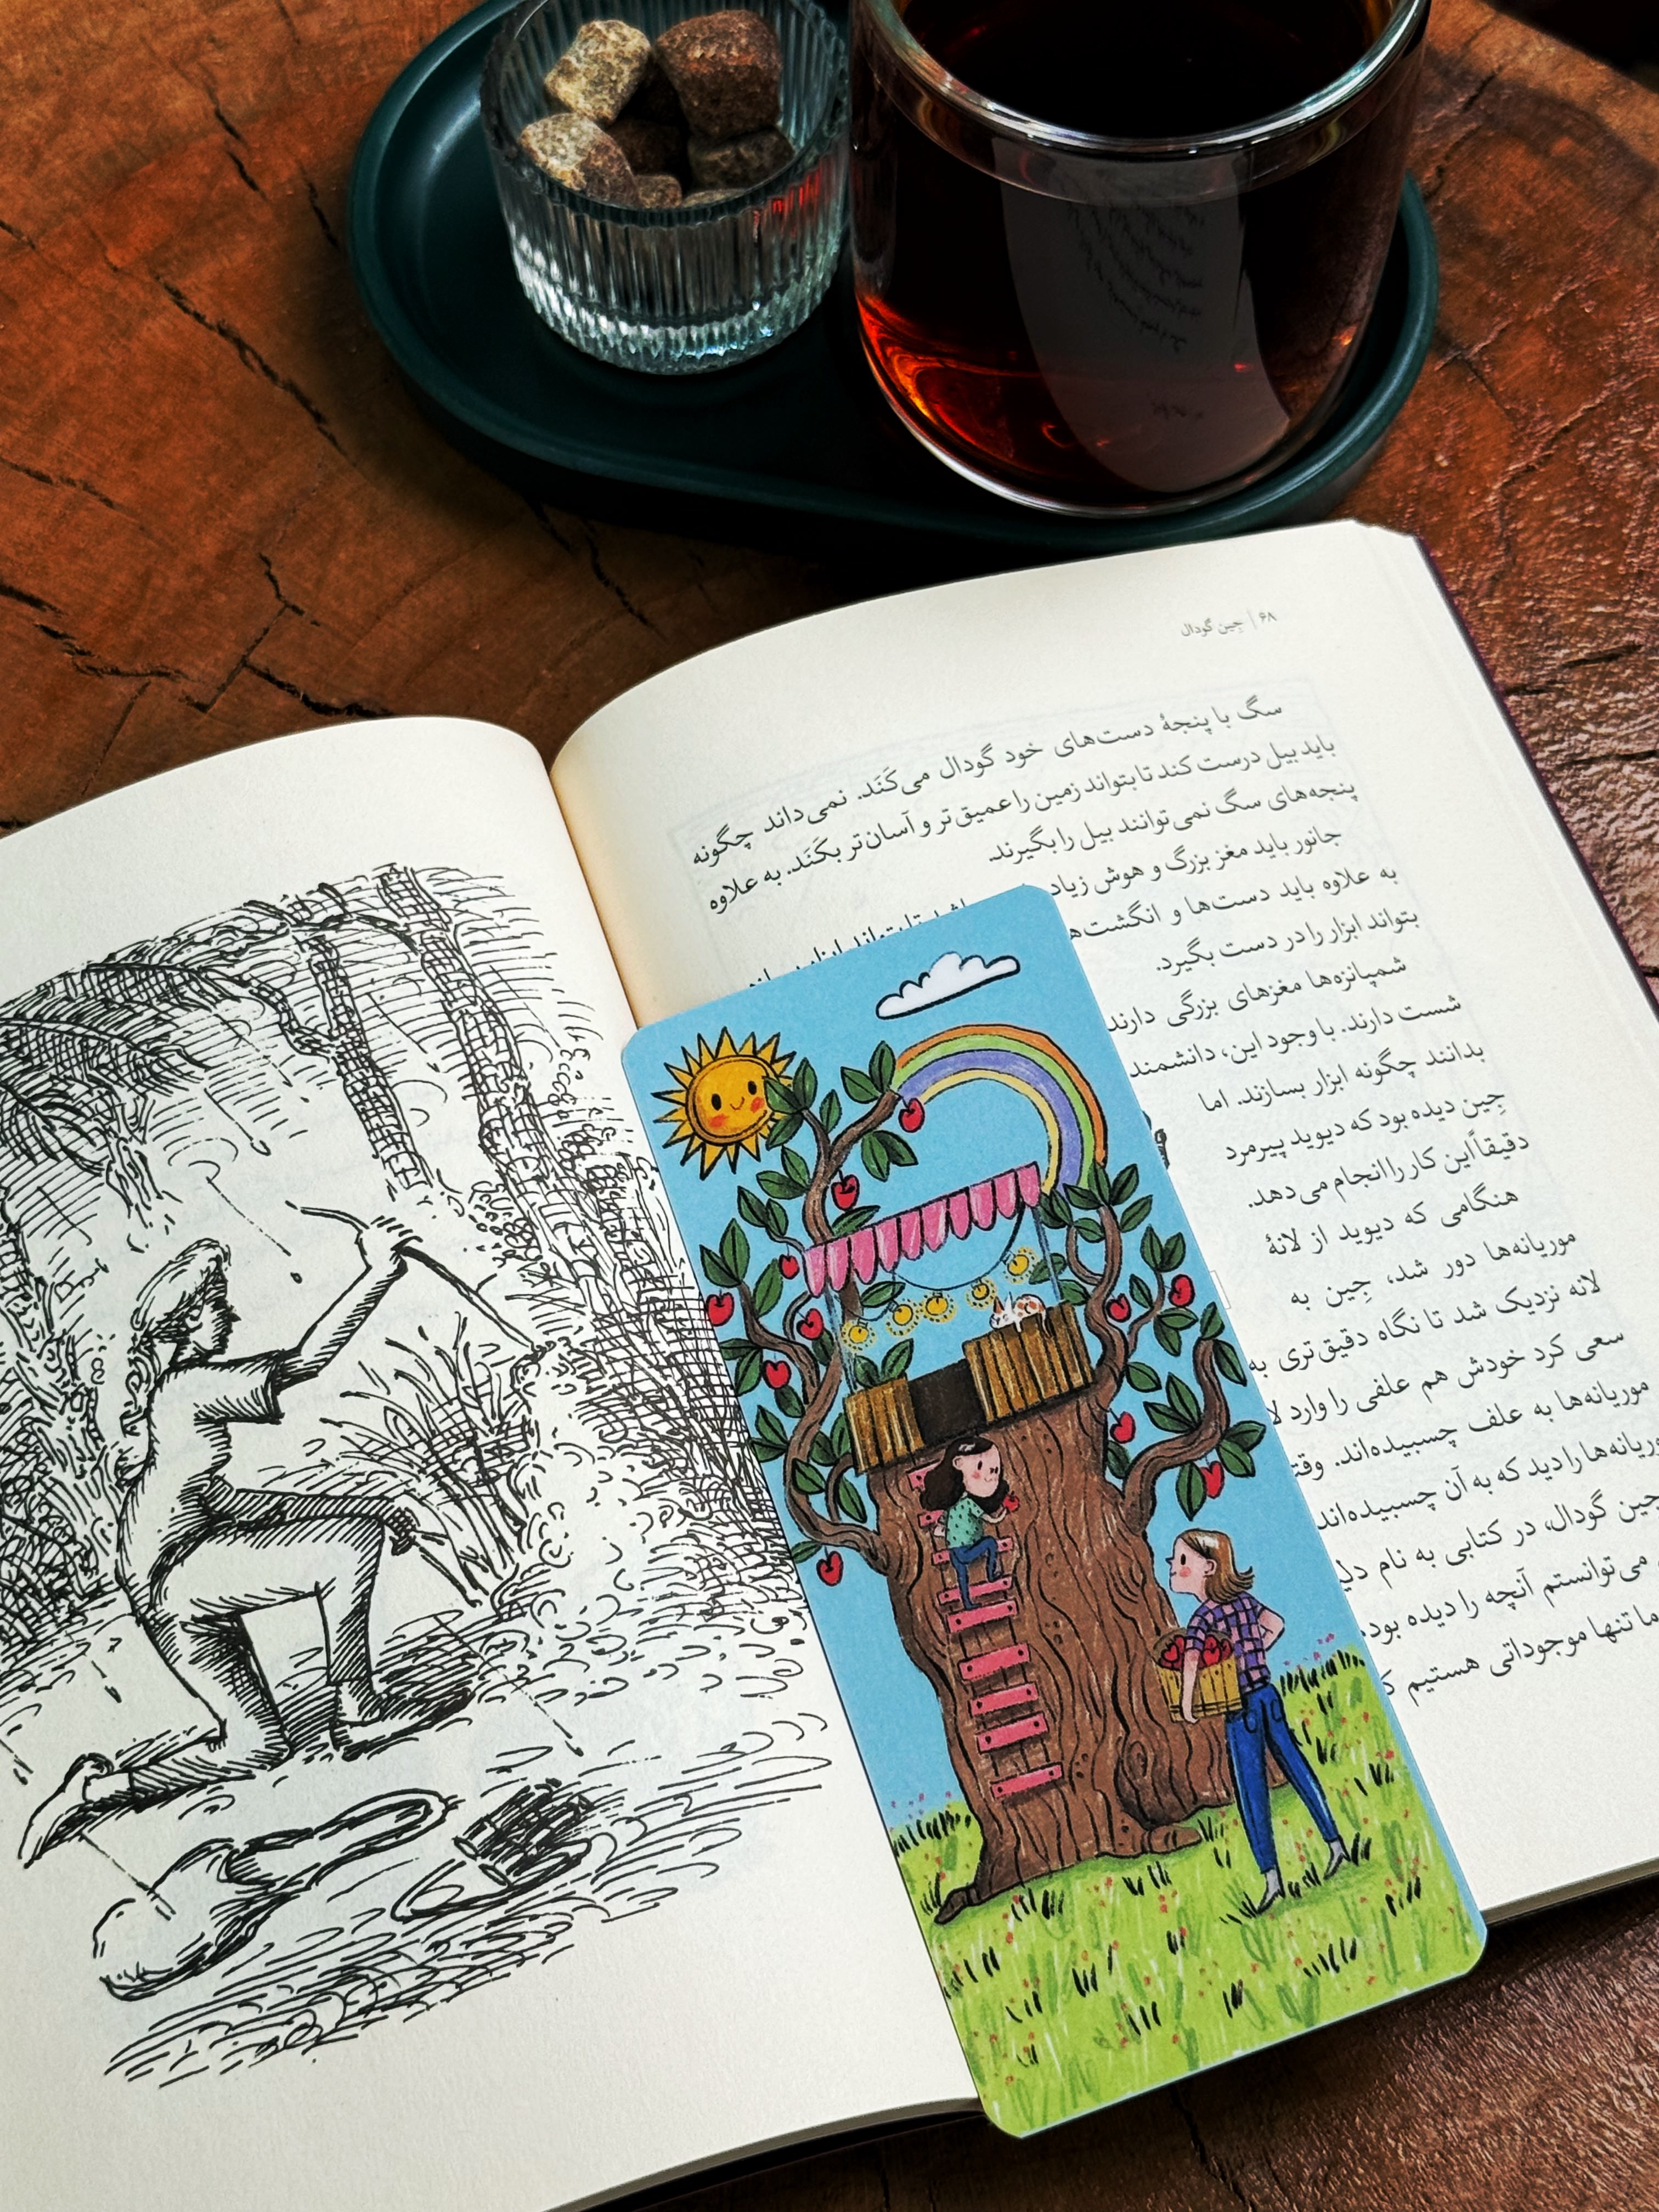 ۶۸ | جِین گودال
سگ با پنجهٔ دست‌های خود گودال می‌کَنَد. نمی‌داند چگونه
باید بیل درست کند تا بتواند زمین را عمیق‌تر و آسان‌تر بکَنَد. به علاوه
پنجه‌های سگ نمی‌توانند بیل را بگیرند.
جانور باید مغز بزرگ و هوش زیاد
به علاوه باید دست‌ها و انگشت‌ه
بتواند ابزار را در دست بگیرد.
شمپانزه‌ها مغزهای بزرگی دارند
شست دارند. با وجود این، دانشمند
بدانند چگونه ابزار بسازند. اما
جِین دیده بود که دیوید پیرمرد
دقیقاً این کار را انجام می‌دهد.
هنگامی که دیوید از لانهٔ
موریانه‌ها دور شد، جِین به
لانه نزدیک شد تا نگاه دقیق‌تری به
سعی کرد خودش هم علفی را وارد لا
موریانه‌ها به علف چسبیده‌اند. وقتی
وریانه‌ها را دید که به آن چسبیده‌اند
جین گودال، در کتابی به نام
می‌توانستم آنچه را دیده بود
ما تنها موجوداتی هستیم ک